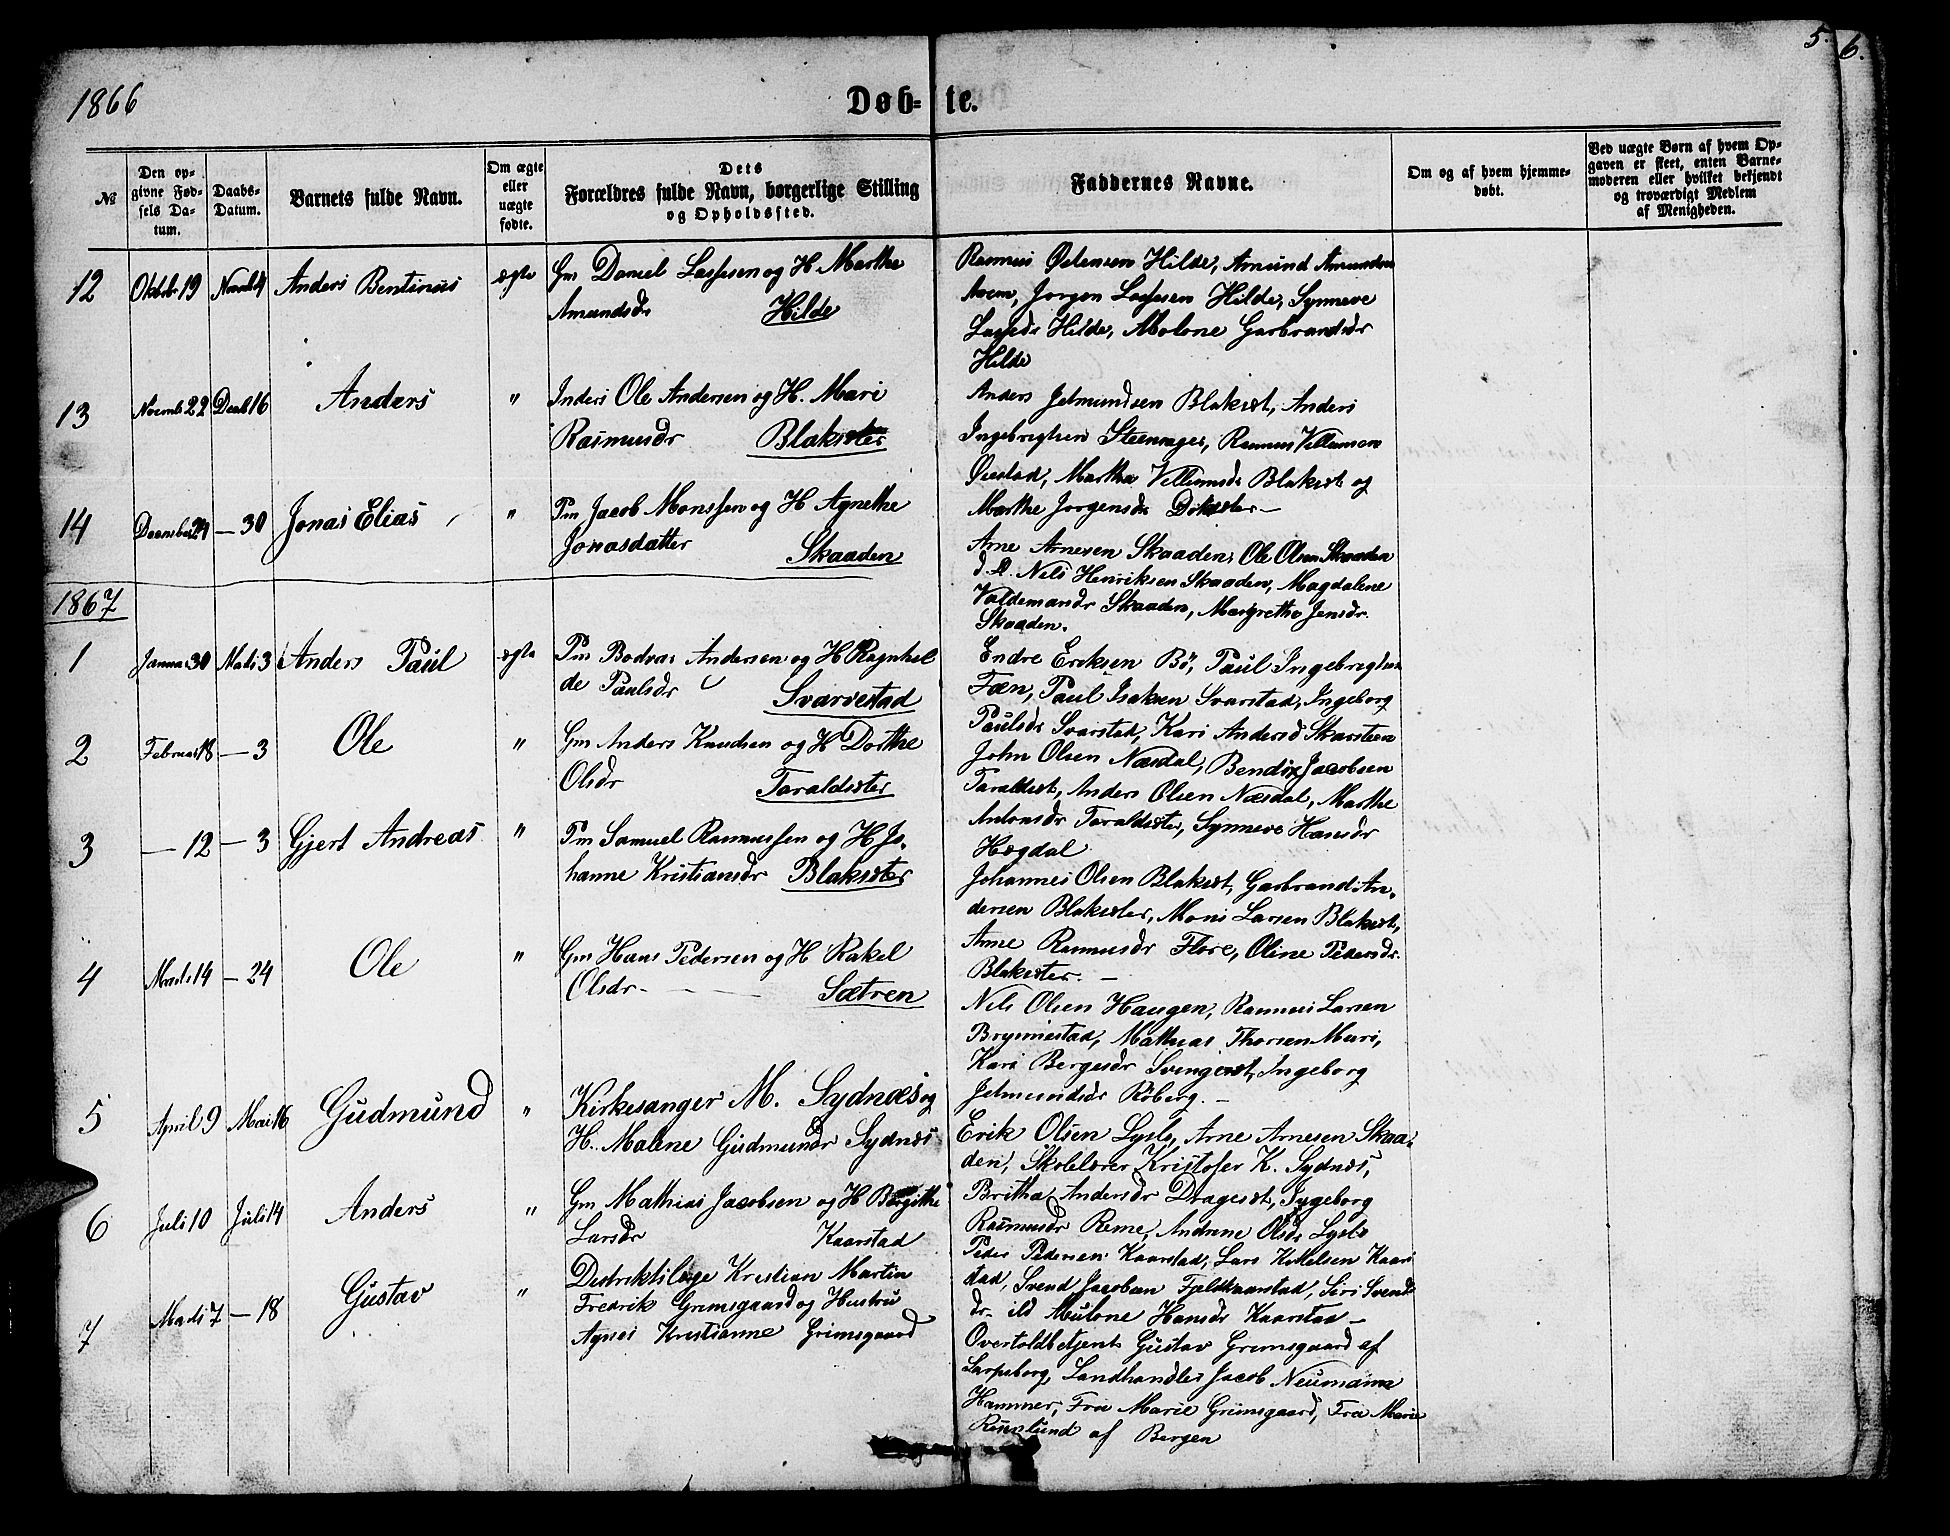 5. 6.
1866
Døb- te.
№
Den op-
givne Fød-
sels Da-
tum.
Daabs-
Datum.
Barnets fulde Navn.
Om ægte
eller
uægte
fødte.
Dets
Forældres fulde Navn, borgerlige Stilling
og Opholdssted.
Faddernes Navne.
Om og af hvem hjemme-
døbt.
Ved uægte Børn af hvem Op-
gaven er skeet, enten Barne-
moderen eller hvilket bekjendt
og troværdigt Medlem
af Menigheden.
12 Oktob. 19 Novb 4 Anders Bentinus ægte Gm Daniel Lassesen og H Marthe
Amundsdr Hilde
Rasmus Hilde, Amund Amundsen
Jorgen Lassesen Hilde, Synneve
Hilde, Malene Garbrandsdr
Hilde
13 Novemb 22 Decb 16 Anders " Inders Ole Andersen og H. Mari
Rasmusdr Blaksæter
Anders Jetmundsen Blaksæt, Anders
Ingebrigtsen Rasmus Villumsen
Øvestad, Marthe Villumsdr Blaksæt og
Marthe Jorgensdr
14 December 24 — 30 Jonas Elias " Pm Jacob Monssen og H Agnethe
Jonasdatter Skaaden
Arne Arnesen Skaaden, Ole Olsen Skaaden
d. Æ. Nels Henriksen Skaaden, Magdalene
Valdemarsdr Skaaden, Margrethe Jensdr.
Skaaden.
1867
1 Januar 30 Marts 3 Anders Paul ægte Pm Bodvar Andersen og H Ragnhil
de Paulsdr Svarvestad
Endre Eriksen Bø, Paul Ingebrigtsen
Fæn, Paul Isaksen Svarstad, Ingeborg
Paulsdr Svarstad, Kari Andersd Skarsteen
2 Februar 18 — 3 Ole " Gm Anders Knudsen og H Dorthe
Olsdr Taraldsæter
John Olsen Næsdal, Bendix Jacobsen
Taraldsæt, Anders Olsen Næsdal, Marthe
Antonsdr Taraldsæter, Synneve Hansdr
Hogdal
3 — 12 — 3 Gjert Andreas " Pm Samuel Rasmussen og H Jo-
hanne Kristiansdr Blaksæter
Johannes Olsen Blaksæt, Garbrand An-
dersen Blaksæter, Mons Larsen Blaksæt,
Anne Rasmusdr Flore, Oline Pedersdr.
Blaksæter. —
4 Marts 14 — 24 Ole " Gm Hans Pedersen og H Rakel
Olsdr — Sætren
Nils Olsen Haugen, Rasmus Larsen
Bryniestad, Mathias Thorsen Muri,
Kari Bergesdr Ingeborg
Jetmundsdr Roberg. —
5 April 9 Mai 16 Gudmund " Kirkesanger M. Sydnæs og
H. Malene Gudmundr Sydnæs
Erik Olsen Lyslo, Arne Arnesen Skaa-
den, Skolelærer Kristofer K. Sydnæs,
Britha Andersdr Dragesæt, Ingeborg
Rasmusdr Reme, Andrine Olsdr Lyslo
6 Juli 10 Juli 14 Anders " Gm Mathias Jacobsen og H Birgithe
Larsdr Kaarstad
Peder Pedersen Kaarstad, Lars Kaar
stad, Svend Jacobsen Fjeldkaarstad, Siri Svends
dr. ild Malene Hansdr Kaarstad —
7 Marts 7 — 18 Gustav " Distriktslæge Kristian Martin
Fredrik Grimsgaard og Hustru
Agnes Kristianne Grimsgaard
Overtoldbetjent Gustav Grimsgaard af
Sarpsborg, Landhandler Jacob Neumann
Hammer, Fru Marie Grimsgaard, Fru Marie
af Bergen